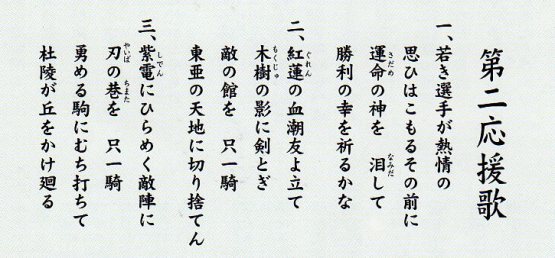 第二応援歌
一、若き選手が熱情の
思ひはこもるその前に
運命の神を 泪して
さだめ なみだ
勝利の幸を祈るかな
二、紅蓮の血潮友よ立て
ぐれん
木樹の影に剣とぎ
もくじゅ
敵の館を 只一騎
東亜の天地に切り捨てん
三、紫電にひらめく敵陣に
しでん
刃の巷を 只一騎
やいば ちまた
勇める駒にむち打ちて
杜陵が丘をかけ廻る